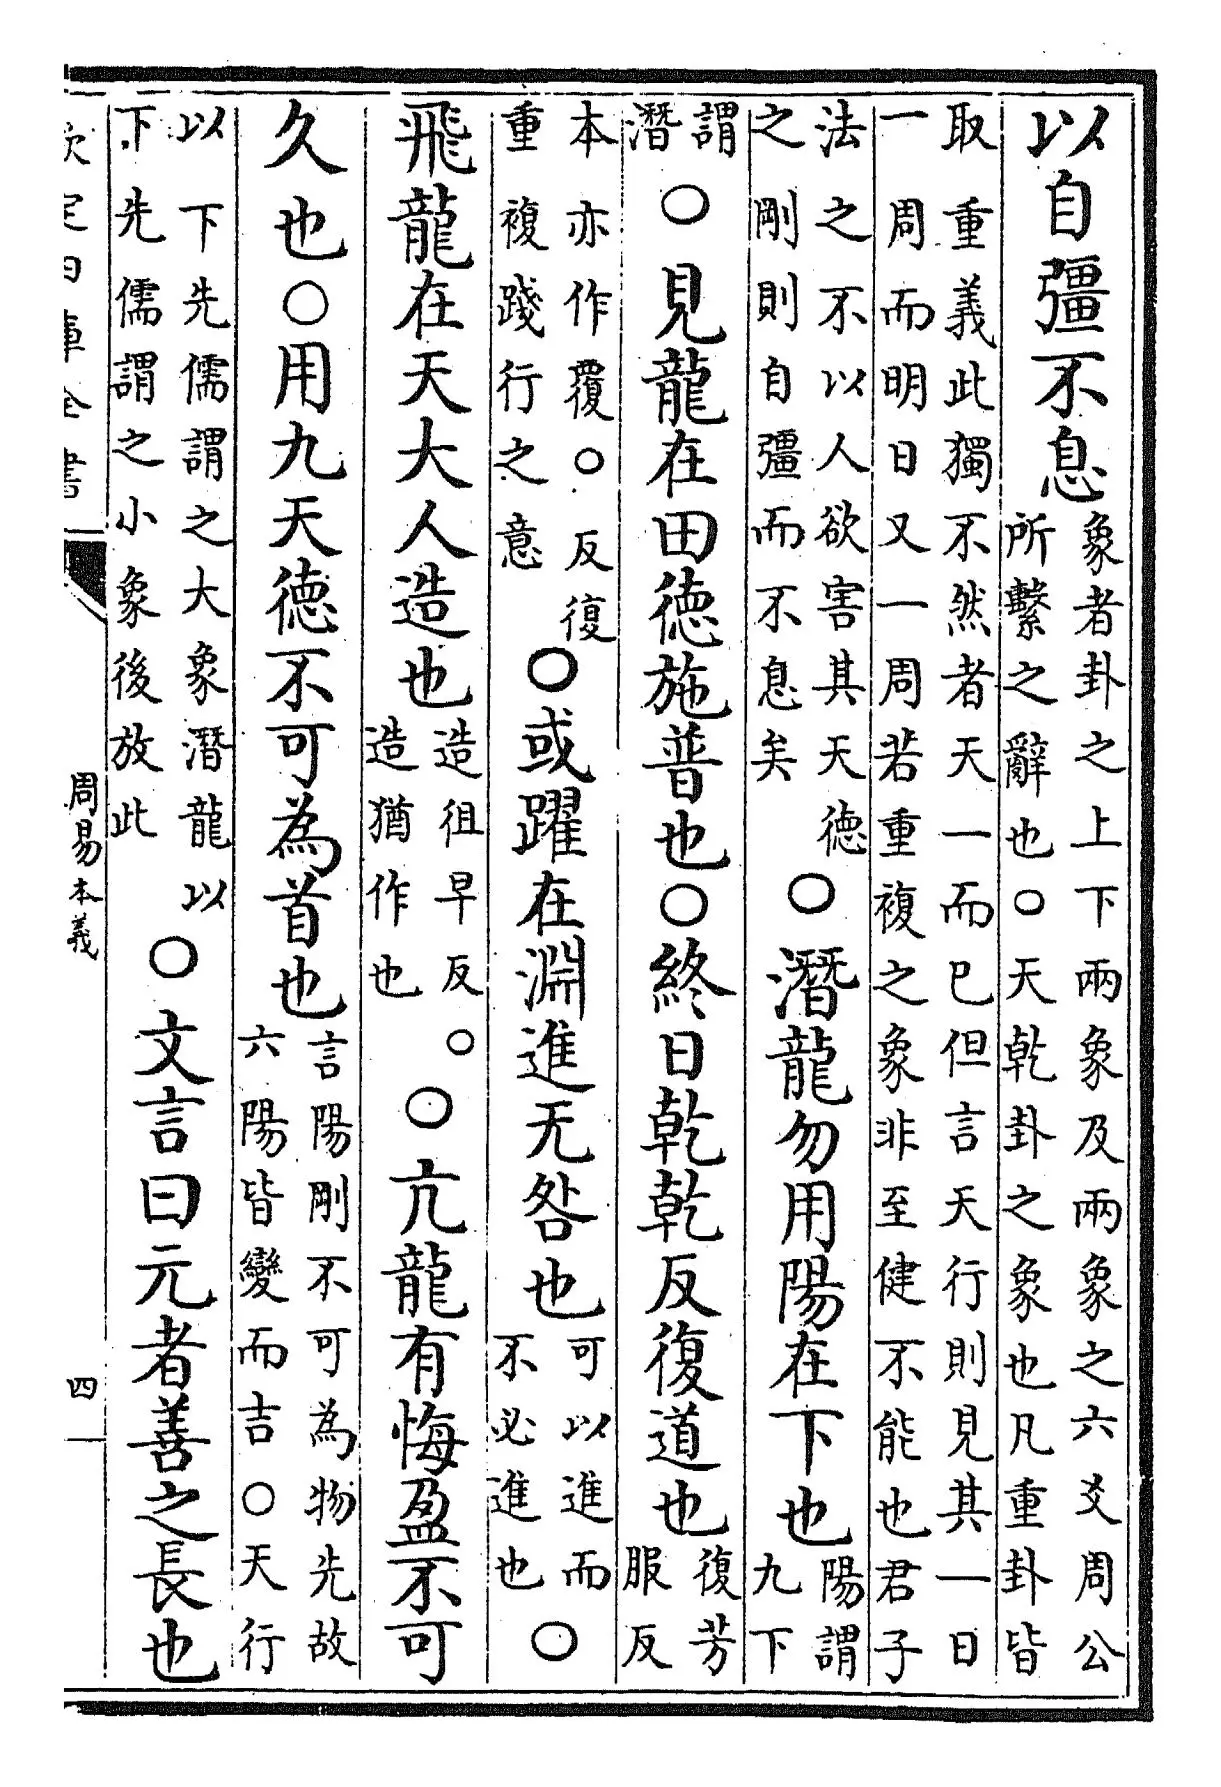 以自彊不息
象者卦之上下兩象及兩象之六爻周公
所繫之辭也○天乾卦之象也凡重卦皆
取重義此獨不然者天一而已但言天行則見其一日
一周而明日又一周若重複之象非至健不能也君子
法之不以人欲害其天徳
之剛則自彊而不息矣
○潛龍勿用陽在下也
陽謂
九下
謂
潛
○見龍在田徳施普也○終日乾乾反復道也
復芳
服反
本亦作覆○反復
重複踐行之意
○或躍在淵進无咎也
可以進而
不必進也
○
飛龍在天大人造也
造徂早反○
造猶作也
○亢龍有悔盈不可
久也○用九天徳不可為首也
言陽剛不可為物先故
六陽皆變而吉○天行
以下先儒謂之大象潛龍以
下先儒謂之小象後放此
○文言曰元者善之長也
欽定四庫全書
周易本義
四